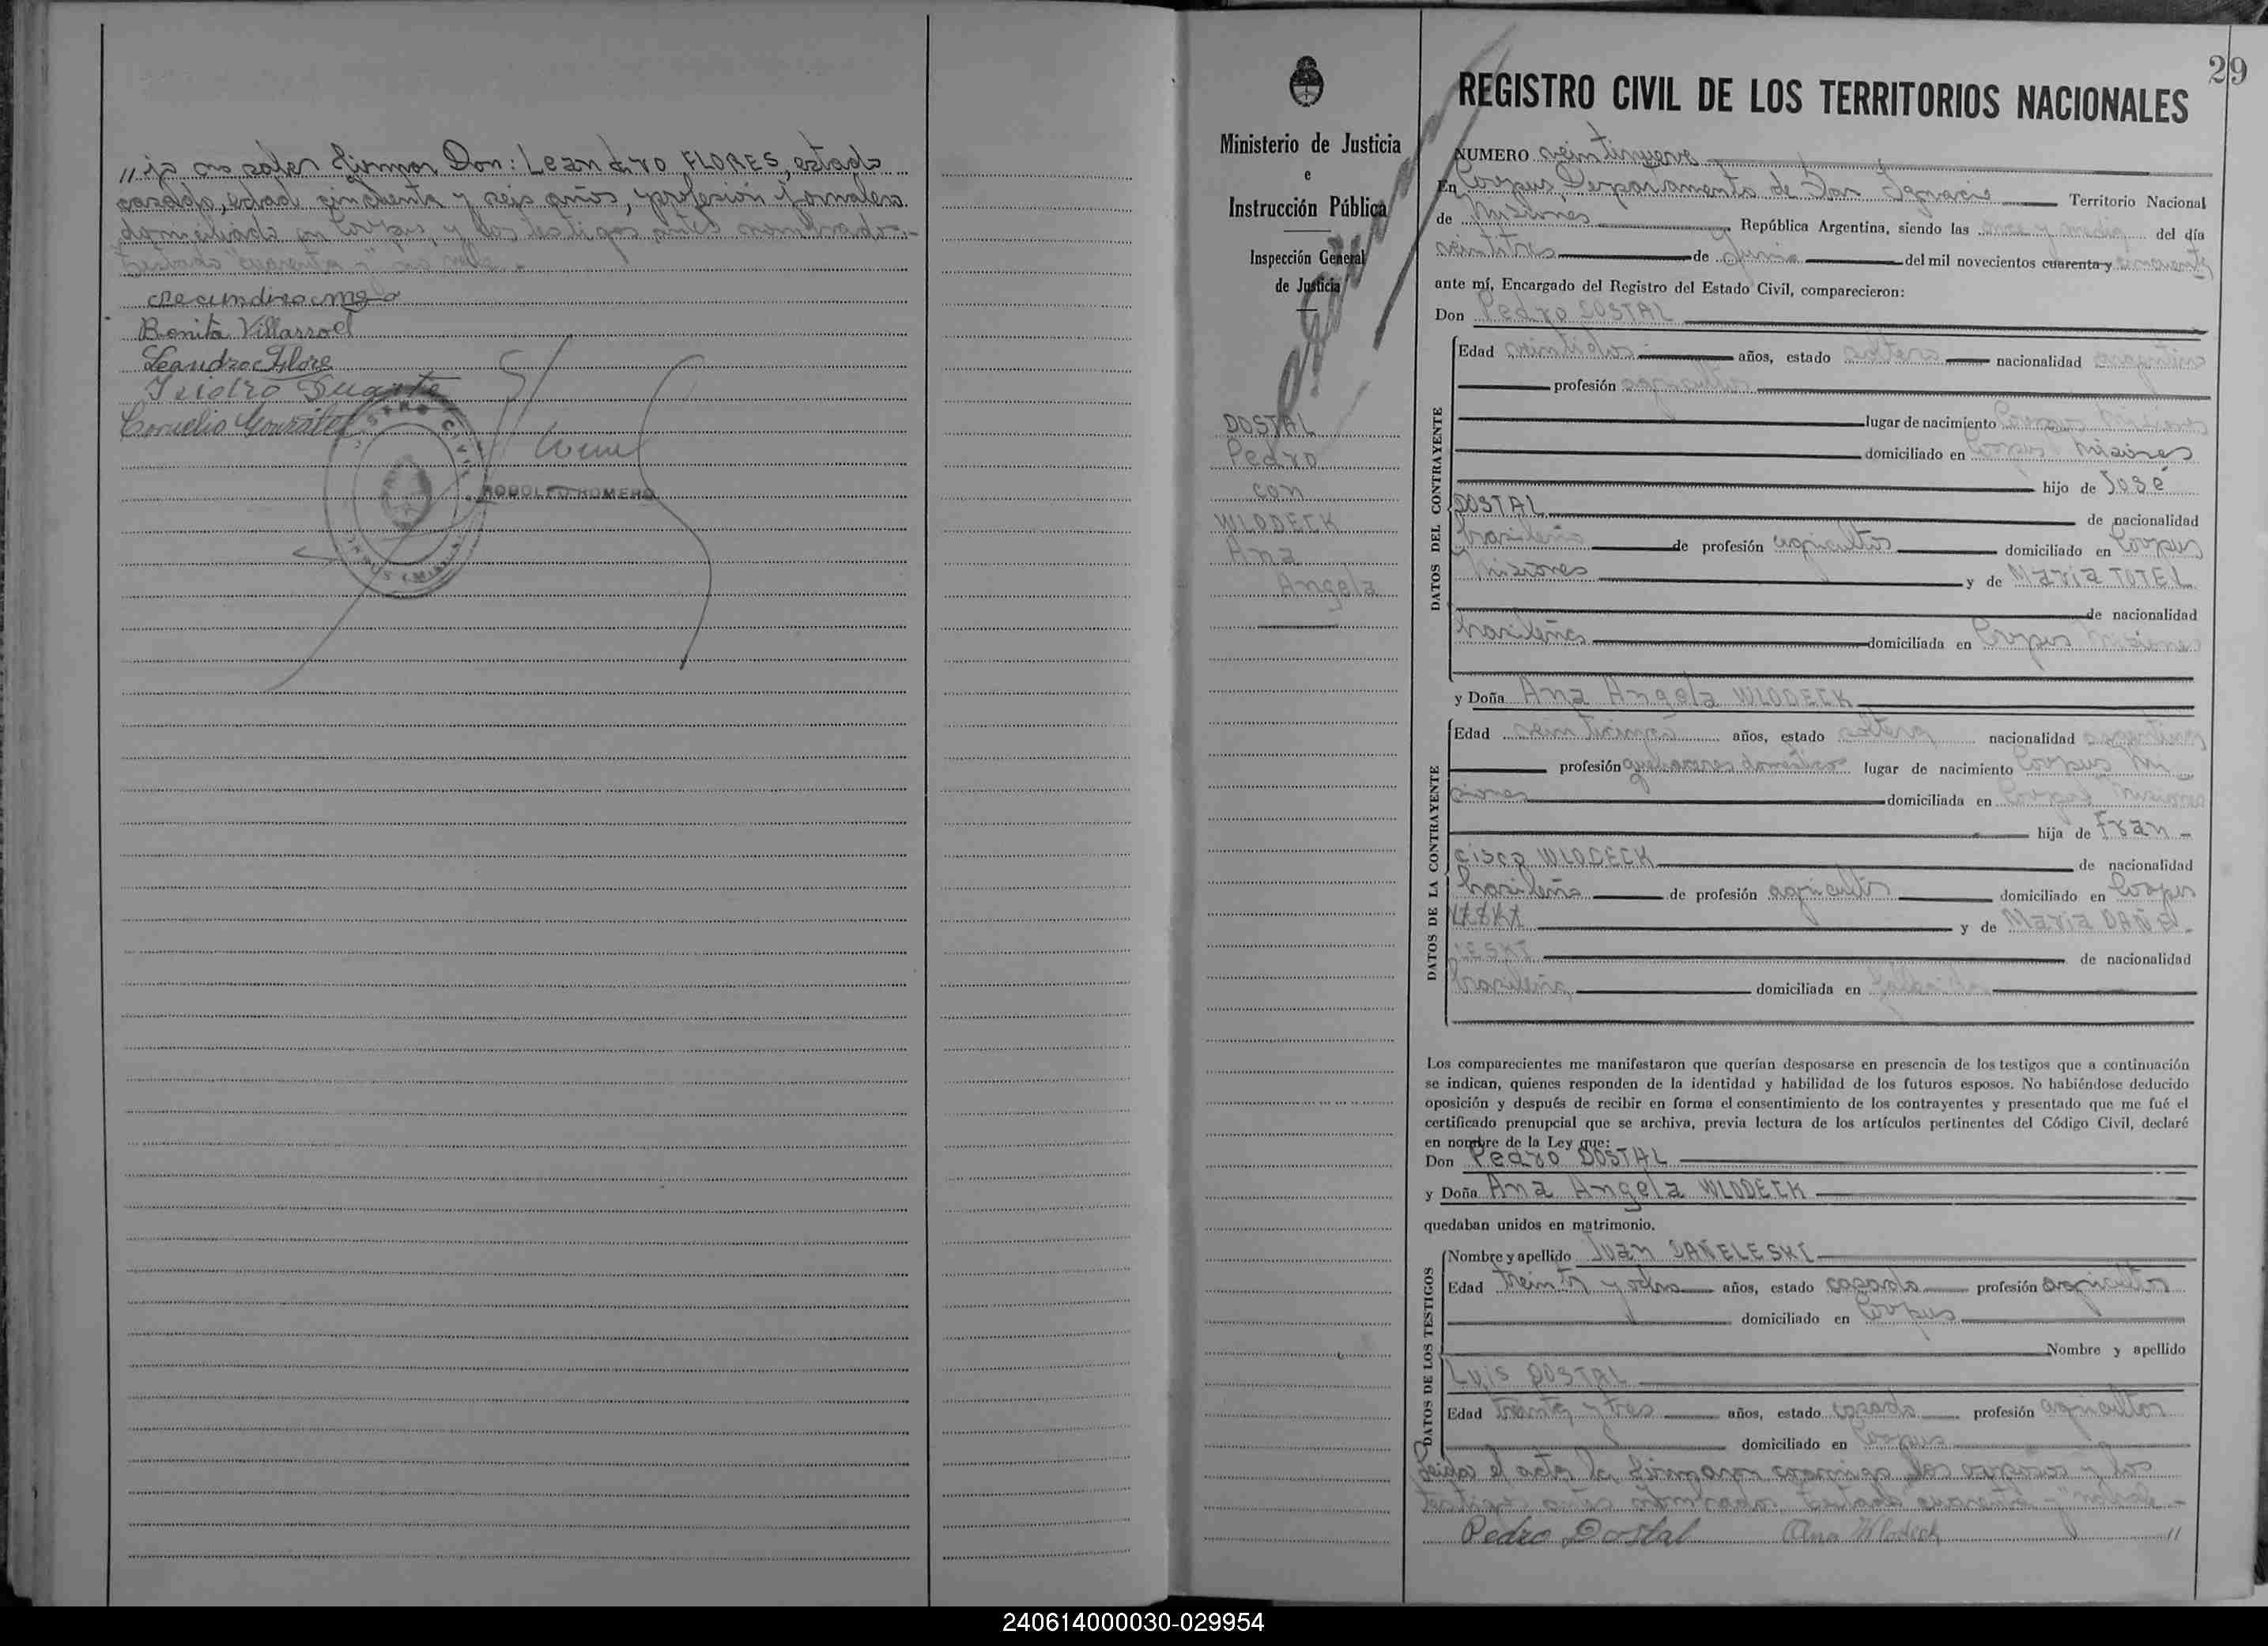 ,,ja no saber firmar Don: Leandro FLORES, estado
casado, edad cincuenta y seis años, profesión jornalero
domiciliado en Corpus, y los testigos antes nombrados.-
Testado "cuarenta y" no vale.-
Bonita Villarroel
Leandro Flore
Isidro Duarte
Cornelio Gonzalez
RODOLFO ROMERO
Ministerio de Justicia
e
Instrucción Pública
Inspección General
de Justicia
DOSTAL
Pedro
con
WLODECK
Ana
Angela
29
REGISTRO CIVIL DE LOS TERRITORIOS NACIONALES
NUMERO veintinueve
En Corpus Departamento de San Ignacio Territorio Nacional
de Misiones República Argentina, siendo las once y media del día
veintitres de Junio del mil novecientos cuarenta y cincuenta
ante mí, Encargado del Registro del Estado Civil, comparecieron:
Don Pedro DOSTAL
DATOS DEL CONTRAYENTE
Edad veintidos años, estado soltero nacionalidad argentino
profesión agricultor
lugar de nacimiento Corpus Misiones
domiciliado en Corpus Misiones
hijo de José
DOSTAL de nacionalidad
brasileño de profesión agricultor domiciliado en Corpus
Misiones y de Maria TOTEL
de nacionalidad
brasileña domiciliada en Corpus Misiones
y Doña Ana Angela WLODECK
DATOS DE LA CONTRAYENTE
Edad veinticinco años, estado soltera nacionalidad argentina
profesión quehaceres domésticos lugar de nacimiento Corpus Mi
siones domiciliada en Corpus Misiones
hija de Fran-
cisco WLODECK de nacionalidad
brasileña de profesión agricultor domiciliado en Corpus
y de Maria DAÑE-
LESKI de nacionalidad
brasileña domiciliada en fallecida
Los comparecientes me manifestaron que querían desposarse en presencia de los testigos que a continuación
se indican, quienes responden de la identidad y habilidad de los futuros esposos. No habiéndose deducido
oposición y después de recibir en forma el consentimiento de los contrayentes y presentado que me fué el
certificado prenupcial que se archiva, previa lectura de los artículos pertinentes del Código Civil, declaré
en nombre de la Ley que:
Don Pedro DOSTAL
y Doña Ana Angela WLODECK
quedaban unidos en matrimonio.
DATOS DE LOS TESTIGOS
Nombre y apellido Juan DAÑELESKI
Edad treinta y ocho años, estado casado profesión agricultor
domiciliado en Corpus
Nombre y apellido
Luis DOSTAL
Edad treinta y tres años, estado casado profesión agricultor
domiciliado en Corpus
Leida el acta la firmaron conmigo los esposos y los
testigos antes nombrados Testado cuarenta-y" no vale-
Pedro Dostal Ana Wlodeck //
240614000030-029954